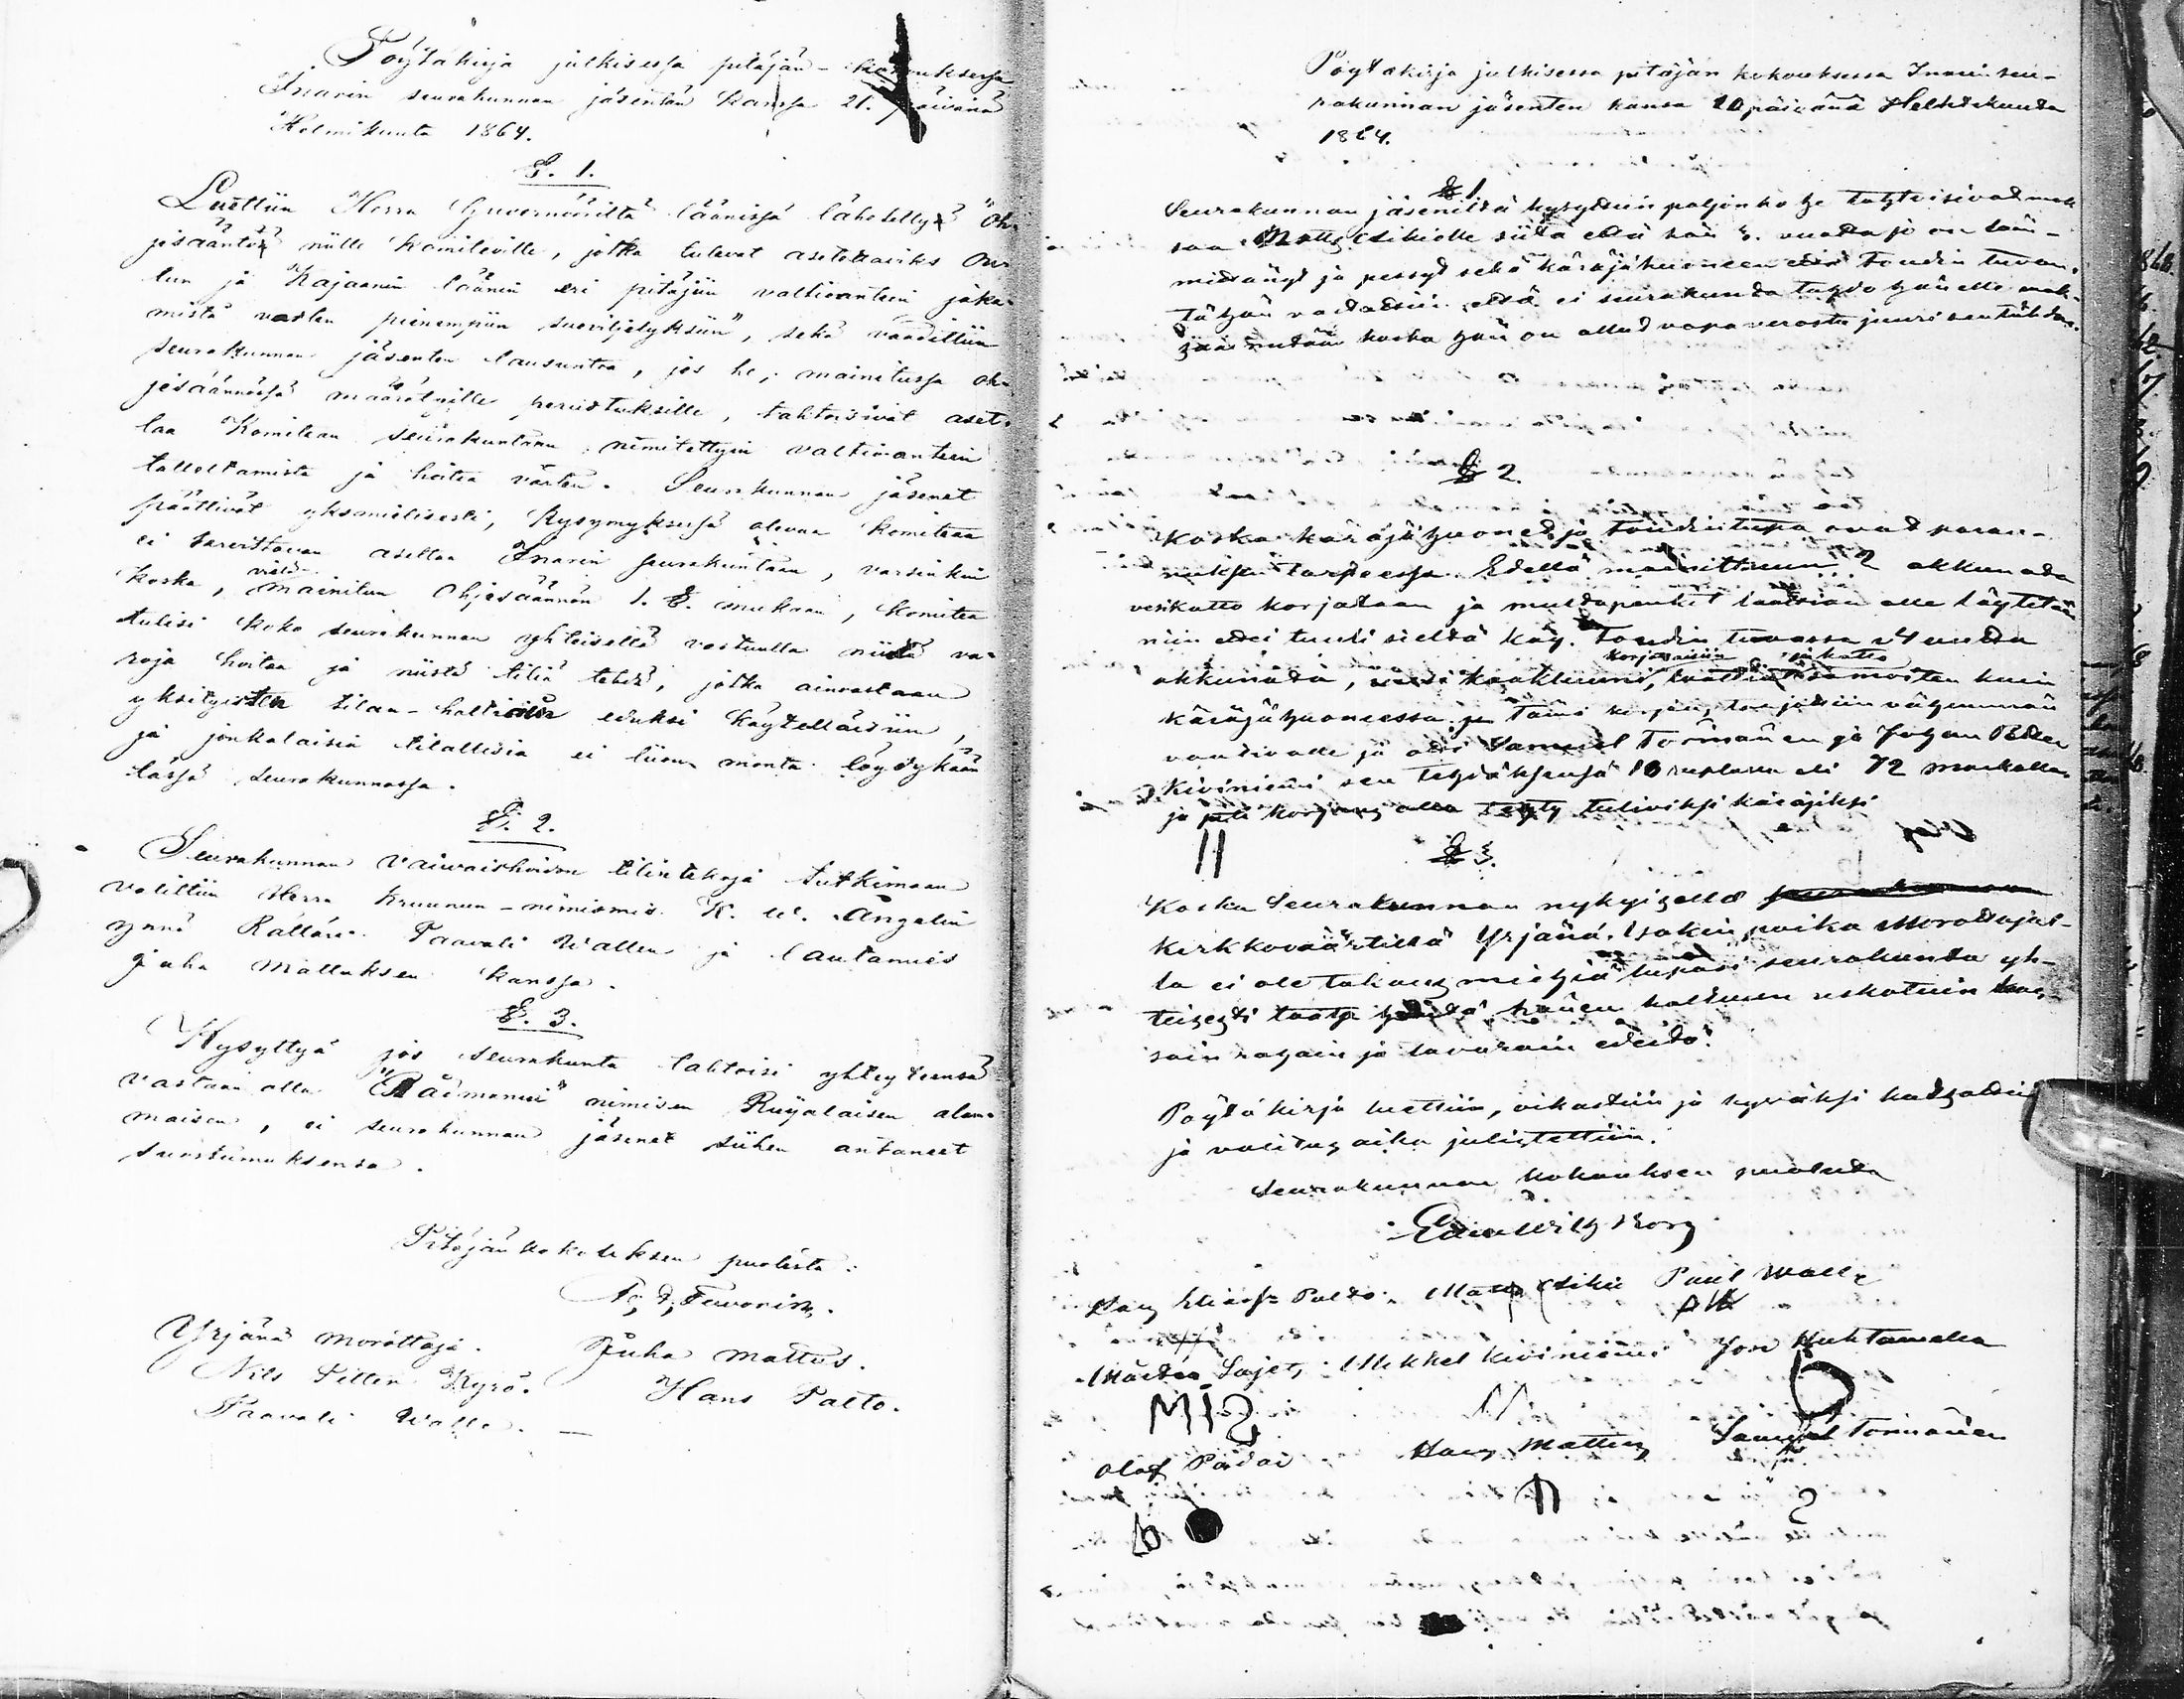 Pöytäkirja julkisessa pitäjän-kokouksessa
Inarin seurakunnan jäsentän kanssa 21. päivänä
Helmikuuta 1864.
§. 1.
Luettiin Herra Guvernööriltä läänissä lähetettyä "Oh-
jesääntöä niille komiteoille, jotka tulevat asetettaviks Ou-
lun ja Kajaanin läänin eri pitäjiin valtioanteen jaka-
mista varten pienempiin suoviljelyksiin", sekä vaadittiin
seurakunnan jäsenten lausuntoa, jos he, mainitussa oh-
jesäännössä määrätyille perustuksille, tahtoisivat aset-
taa Komitean seurakuntaan nimitettyin valtioantein
talteltamista ja hoitoa varten. Seurakunnan jäsenet
päättivät yksimielisesti, kysymyksessä olevan komitean
ei tarvittavan asettaa Inarin seurakuntaan, varsinkin
koska, vielä mainitun Ohjesäännön 1. §. mukaan, komitea
tulisi koko seurakunnan yhteisellä vastuulla niitä va-
roja hoitaa ja niistä tiliä tehdä, jotka ainoastaan
yksityisten tilan-haltiain eduksi käytettäisiin,
ja jonkalaisia tilallisia ei liion monta löydykään
tässä seurakunnassa.
§. 2.
Seurakunnan Vaivaishoidon tilintekoja tutkimaan
valittiin Herra kruunun-nimismies K. W. Ängelin
ynnä Rättäri Paavali Wallen ja lautamies
Juha Mattuksen kanssa.
§. 3.
Kysyttyä jos seurakunta tahtoisi yhteyteensä
vastaan ottaa nimisen Ruijalaisen alam-
maisen, ei seurakunnan jäsenet siihen antaneet
suostumuksensa.
Pitäjänkokouksen puolesta:
Yrjänä Morottaja. Juha Mattus.
Nils Kyrö. Hans Palto.
Paavali Walle.
Pöytäkirja julkisessa pitäjän kokouksessa Inarin seu-
rakunnan jäsenten kanssa 20 päivänä Huhtikuuta
1864.
§ 1.
Seurakunnan jäseniltä kysyttiin paljonko he tahtoisivat mak
saa siitä että hän 3. vuotta jo on läm-
mittänyt ja pessyt sekä käräjähuoneen että tuvan.
Tähän vastattiin että ei seurakunta tahdo hänelle mak-
koska hän on ollut vapa verosta juuri sen tähden.
§ 2.
Koska käräjähuonet ja tupa ovat paran-
nuksen tarpeessa. Edellä mainittuun 2 akkunata
vesikatto korjataan ja multapenkit laattian alle täytetään
niin ettei tuuli sieltä käy. tuvassa 4 uutta
akkunata, korjataisiin ja katto samoiten kuin
käräjähuoneessa ja tämä korjaus tarjottiin vähimmän
vaativalle ja otti Samuel Törmänen ja Johan Petter
Kiviniemi sen tehdäksensä 18 ruplan eli 72 markalla
ja piti korjaus olla tehty tuleviksi käräjiksi
§ 3.
Koska Seurakunnan nykyisellä
kirkkoväärtillä Yrjänä Isakin poika Morottajal-
la ei ole takaus miehiä lupasi seurakunta yh-
teisesti taata hänen haltuun uskotuin
rahain ja tavarain edestä.
Pöytäkirja luettiin, oikastiin ja hyväksi katsottiin
ja valitus aika julistettiin.
Seurakunnan kokouksen puolesta
Edvin Wilh Borg
Hans Palto. Paul Walle
Sajets Mikkel Kiviniemi Huhtamella
Olof Hans Mattus Samuel Törmänen